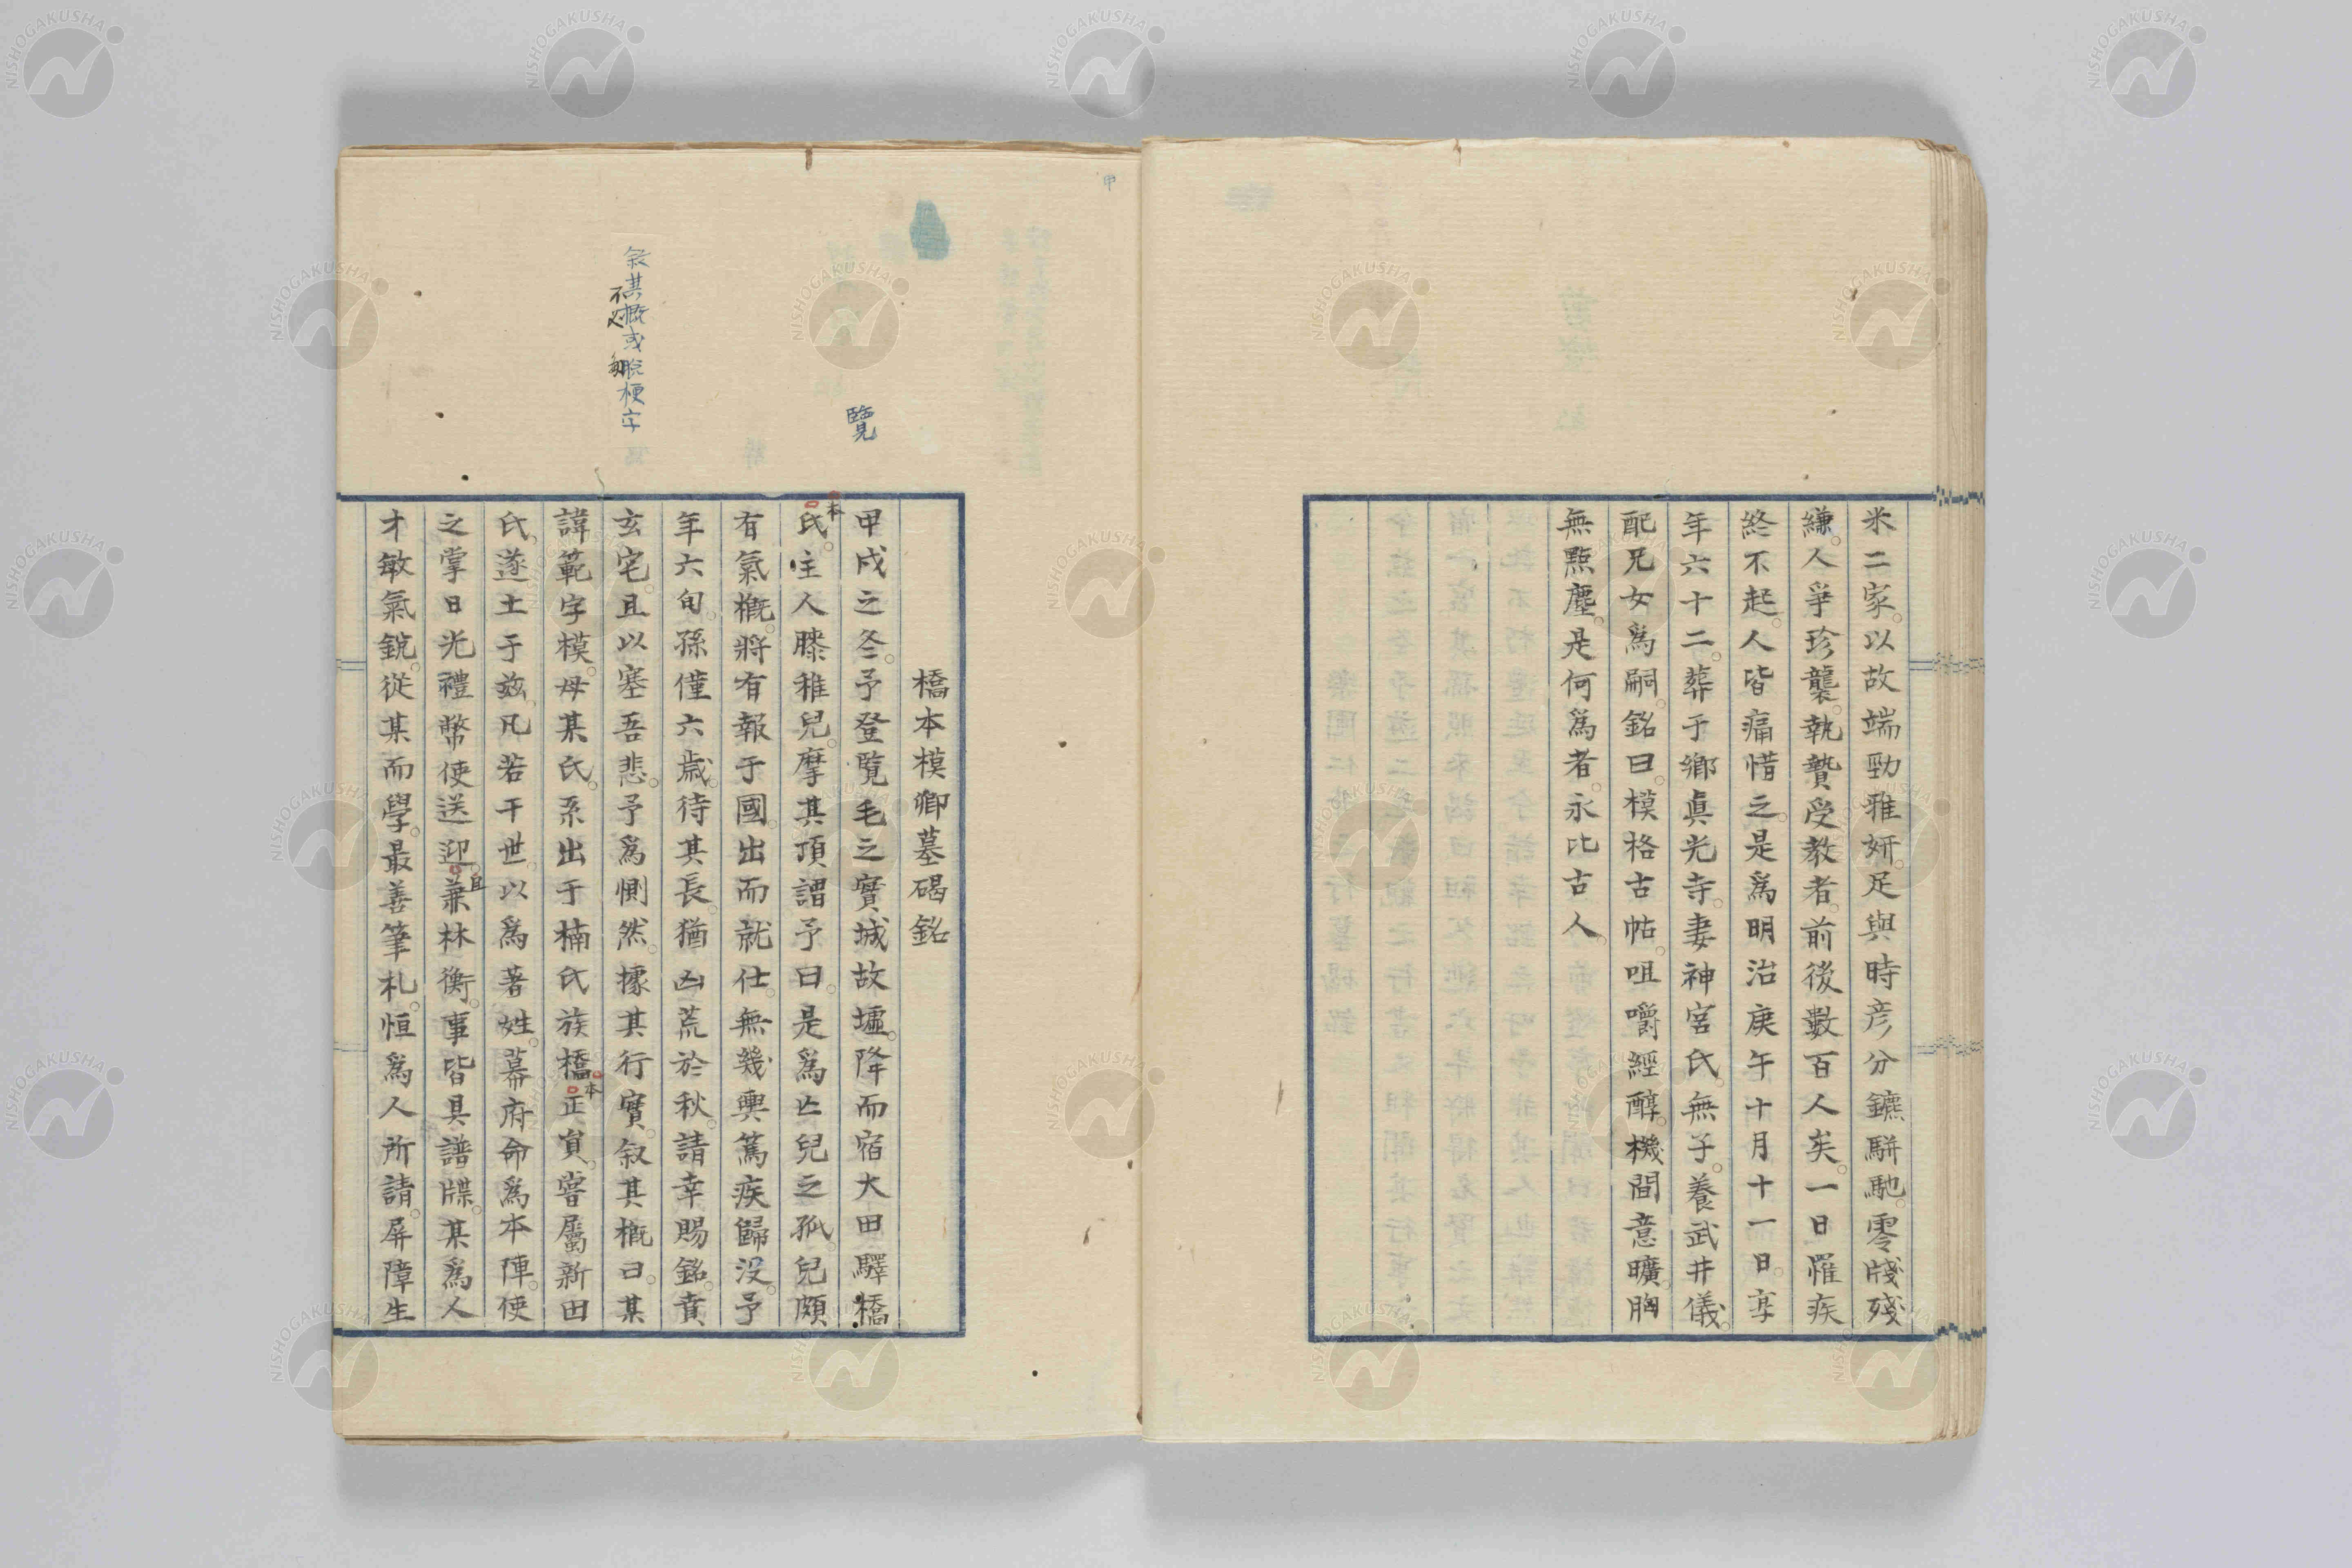 米二家。以故端勁雅妍。足與時彥分鑣駢馳。零牋殘
縑。人爭珍襲。執贄受教者。前後數百人矣。一日罹疾
終不起。人皆痛惜之。是爲明治庚午十月十一日。享
年六十二。葬于鄉眞光寺。妻神宮氏。無子。養武井儀。
配兄女爲嗣。銘曰。模格古帖。咀嚼經醇。機間意曠。胸
無點塵。是何爲者。永比古人。
甲
覽
叙其概或脫梗字
不必
橋本模卿墓碣銘
甲戌之冬。予登覽毛之寶城故墟。降而宿大田驛橋
本
氏。主人膝稚兒。摩其頂謂予曰。是爲亡兒之孤。兒頗
有氣概。將有報于國。出而就仕。無幾輿篤疾歸没。予
年六旬。孫僅六歳。待其長。猶凶荒於秋。請幸賜銘。賁
玄宅。且以塞吾悲。予爲惻然。據其行實。叙其概曰。某
諱範字模。母某氏。系出于楠氏族橋正寅。嘗屬新田
本
氏。遂土于玆。凡若干世。以爲著姓。幕府命爲本陣。使
之掌日光禮幣使送迎。兼林衡。事皆具譜牒。某爲人
且
才敏氣銳。從某而學。最善筆札。恒爲人所請。屏障生
NISHOGAKUSHA